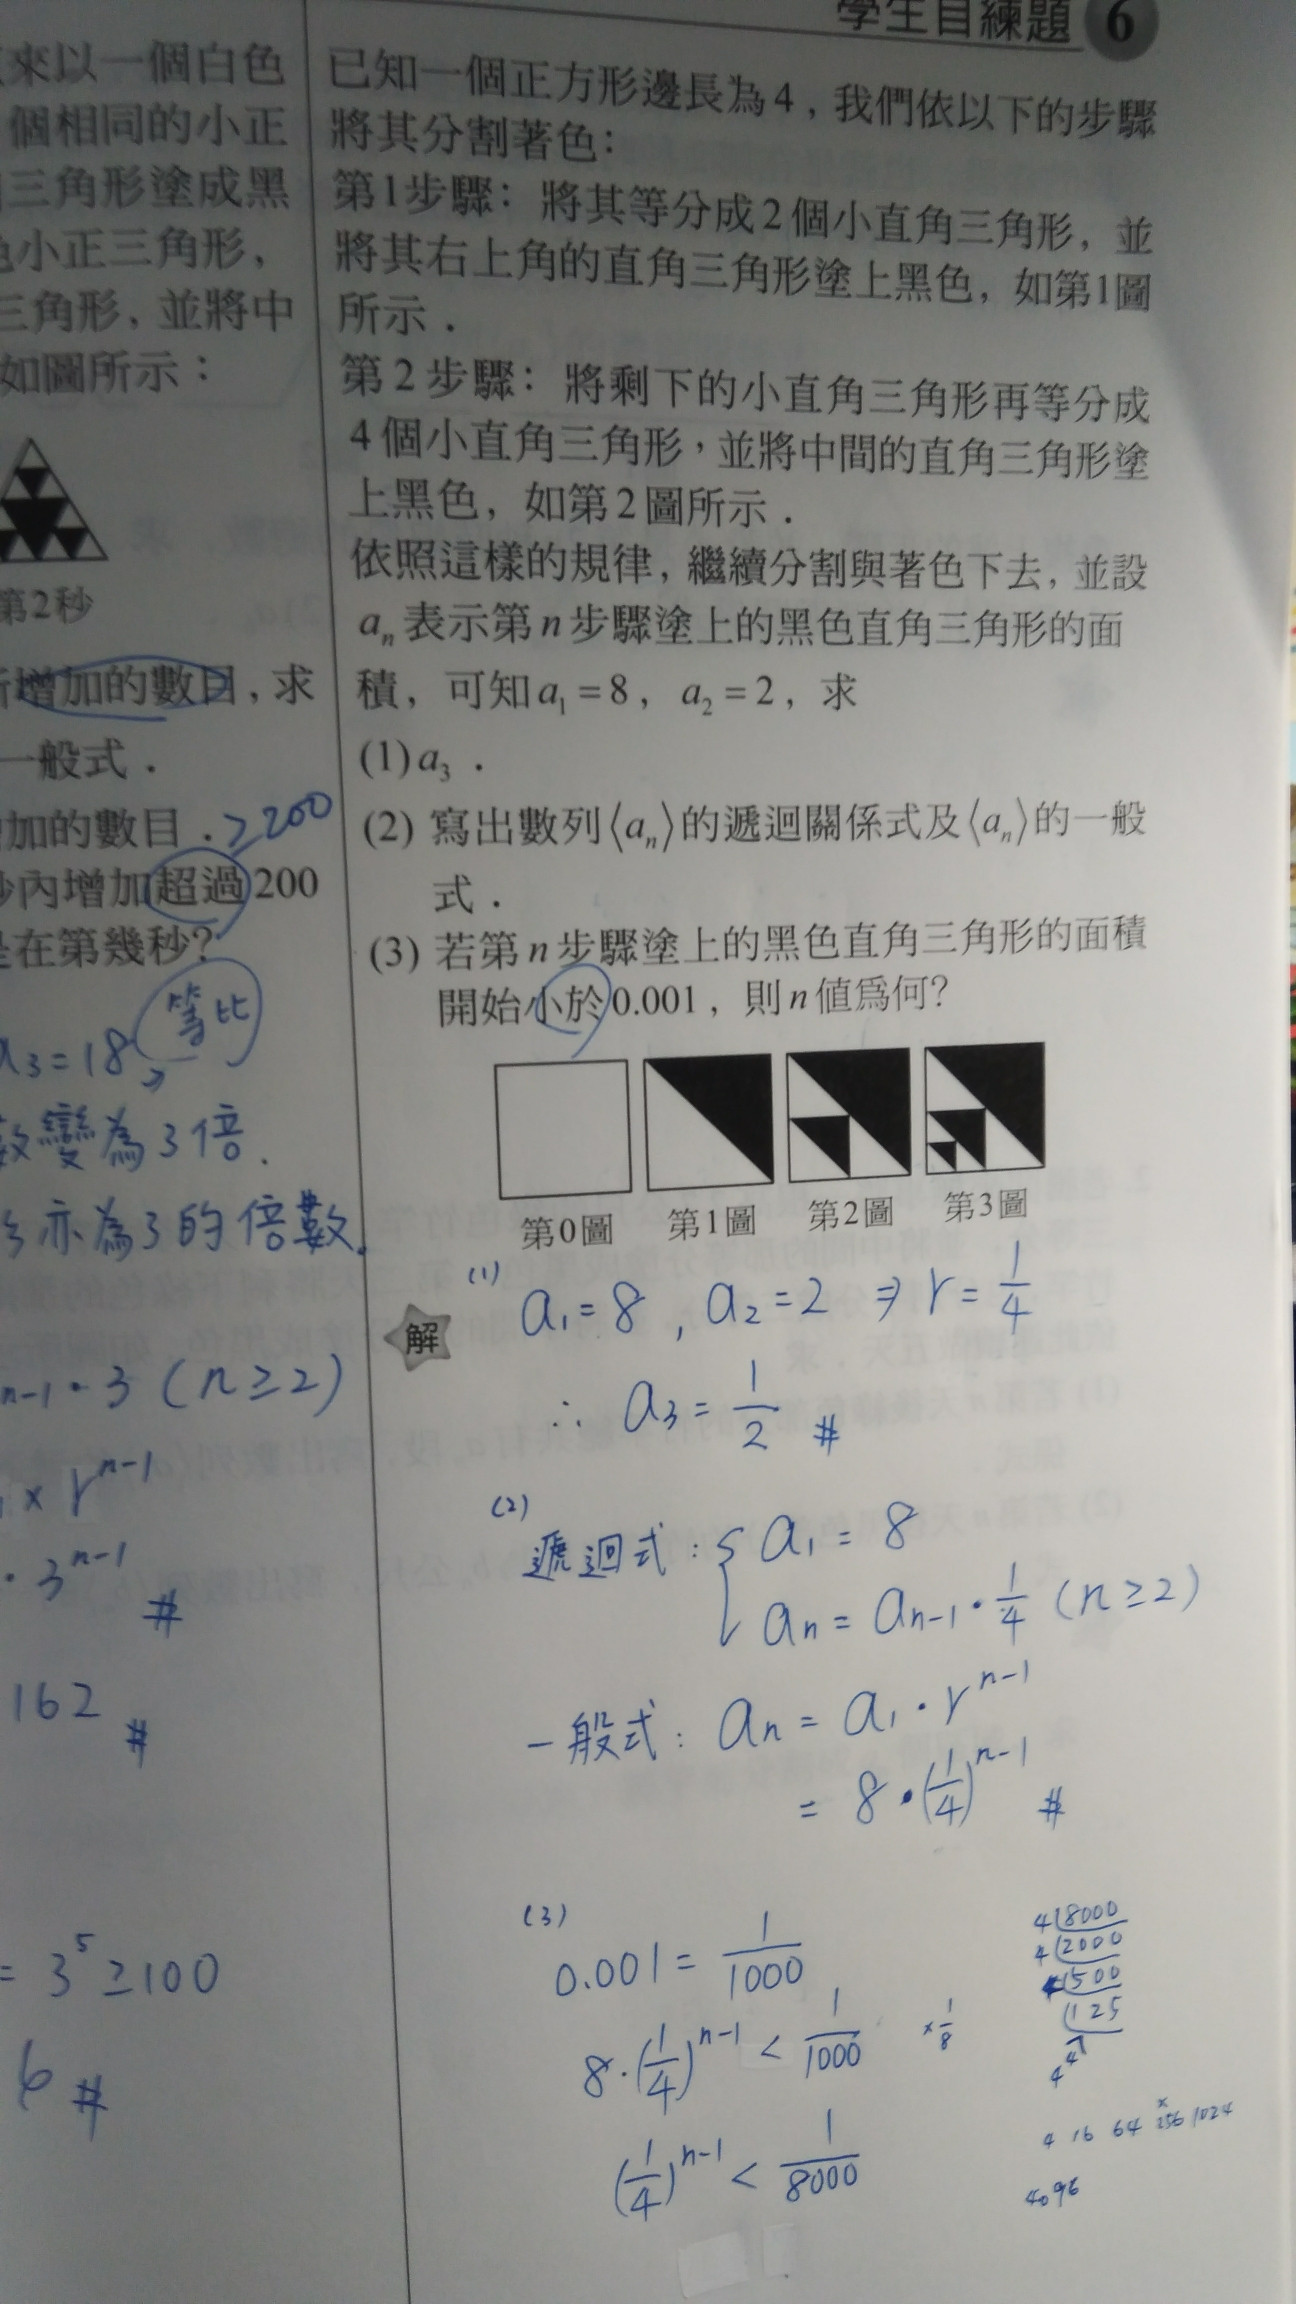 學生自練題 6
來以一個白色
個相同的小正
三角形塗成黑
色小正三角形，
三角形，並將中
如圖所示：
第2秒
增加的數目，求
一般式．
加的數目．≥200
秒內增加超過200
是在第幾秒？
a₃=18 等比
數變為3倍．
亦為3的倍數．
n-1・3 (n≥2)
× r^(n-1)
・3^(n-1) #
162 #
= 3⁵ ≥100
6 #
已知一個正方形邊長為4，我們依以下的步驟
將其分割著色：
第1步驟：將其等分成2個小直角三角形，並
將其右上角的直角三角形塗上黑色，如第1圖
所示．
第2步驟：將剩下的小直角三角形再等分成
4個小直角三角形，並將中間的直角三角形塗
上黑色，如第2圖所示．
依照這樣的規律，繼續分割與著色下去，並設
aₙ表示第n步驟塗上的黑色直角三角形的面
積，可知a₁=8，a₂=2，求
(1) a₃．
(2) 寫出數列⟨aₙ⟩的遞迴關係式及⟨aₙ⟩的一般
式．
(3) 若第n步驟塗上的黑色直角三角形的面積
開始小於0.001，則n值為何？
第0圖 第1圖 第2圖 第3圖
解
(1) a₁=8，a₂=2 ⇒ r=1/4
∴ a₃=1/2 #
(2)
遞迴式：{ a₁=8
aₙ=aₙ₋₁・1/4 (n≥2)
一般式：aₙ=a₁・r^(n-1)
=8・(1/4)^(n-1) #
(3)
0.001=1/1000
8・(1/4)^(n-1) < 1/1000 ×1/8
(1/4)^(n-1) < 1/8000
4 8000
4 2000
4 500
125
4⁴
4 16 64 256 1024
4096